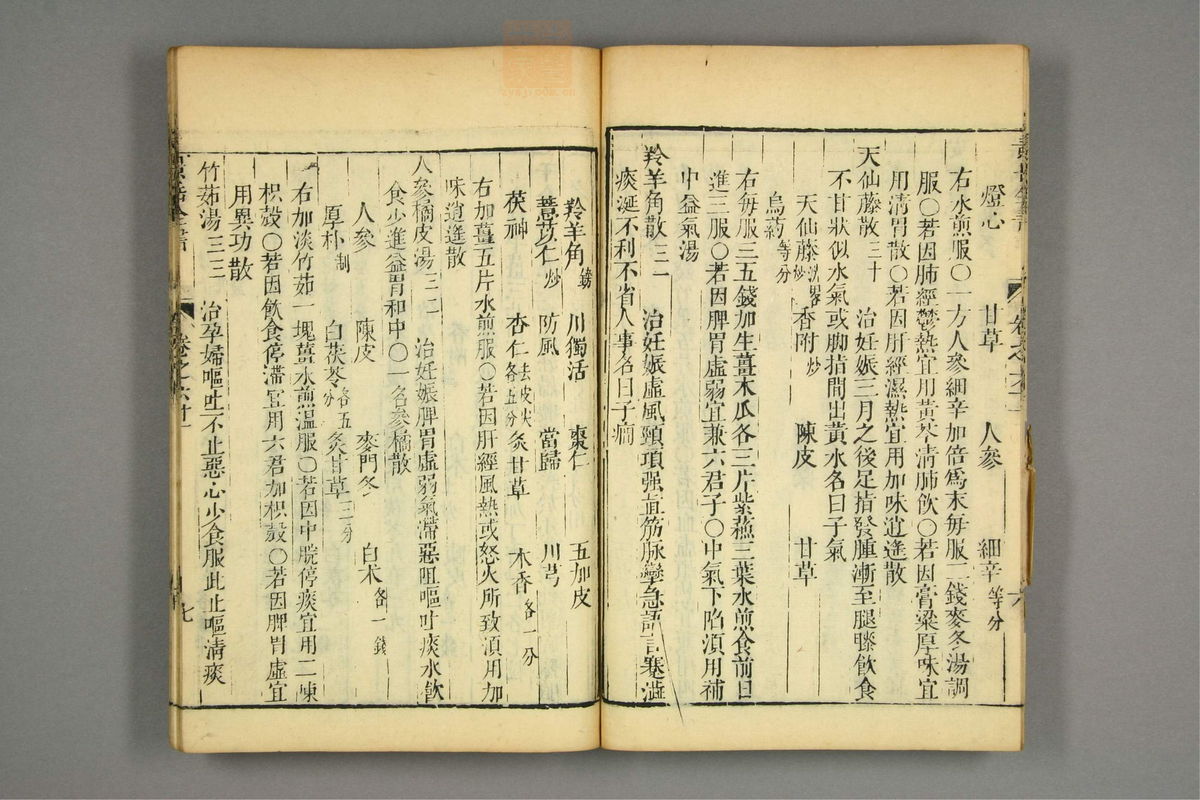 燈心　甘草　人參　細辛等分
右水煎服〇一方人參細辛加倍爲末每服二錢麥冬湯調
服〇若因肺經鬱熱宜用黃芩清肺飲〇若因膏粱厚味宜
用清胃散〇若因肝經濕熱宜用加味逍遙散
天仙藤散三十　治妊娠三月之後足指發腫漸至腿膝飲食
不甘狀似水氣或脚指間出黃水名曰子氣
天仙藤洗畧炒　香附炒　陳皮　甘草
烏药等分
右每服三五錢加生薑木瓜各三片紫蘓三葉水煎食前日
進三服〇若因脾胃虛弱宜兼六君子〇中氣下陷湏用補
中益氣湯
羚羊角散三一　治妊娠虛風頸項强直筋脉攣急語言蹇澁
痰涎不利不省人事名曰子癎
羚羊角鎊　川獨活　棗仁　五加皮
薏苡仁炒　防風　當歸　川芎
茯神　杏仁去皮尖各五分　炙甘草　木香各一分
右加薑五片水煎服〇若因肝經風熱或怒火所致湏用加
味逍遙散
人參橘皮湯三二　治妊娠脾胃虛弱氣滯惡阻嘔吐痰水飲
食少進益胃和中〇一名參橘散
人參　陳皮　麥門冬　白术各一錢
厚朴制　白茯苓各五分　炙甘草三分
右加淡竹茹一塊薑水煎溫服〇若因中脘停痰宜用二陳
枳殻〇若因飲食停滯宜用六君加枳殻〇若因脾胃虛宜
用異功散
竹茹湯三三　治孕婦嘔吐不止惡心少食服此止嘔清痰
卷之六十一
七